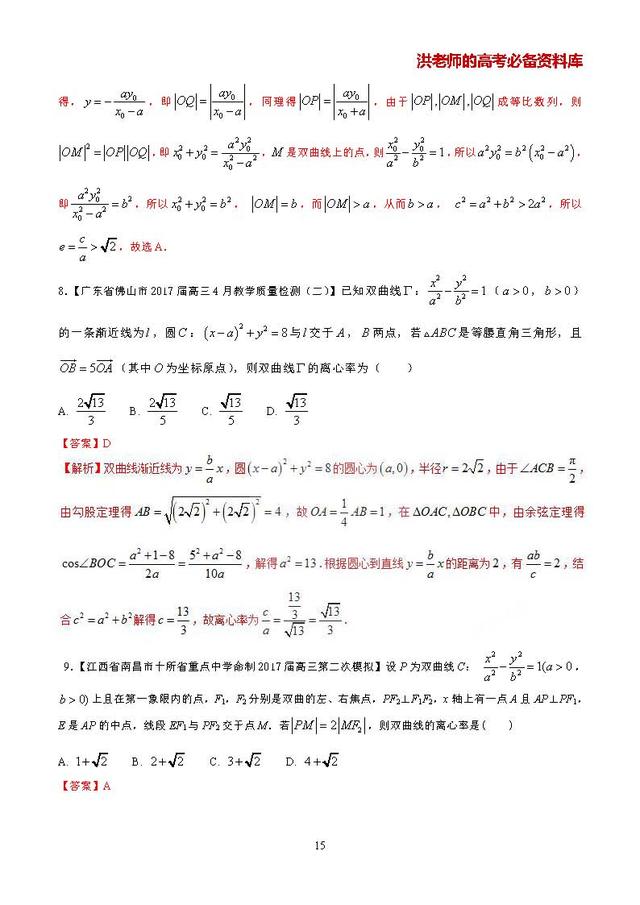 洪老师的高考必备资料库
得, y=-\frac{ay_0}{x_0-a}, 即|OQ|=|\frac{ay_0}{x_0-a}|, 同理得|OP|=|\frac{ay_0}{x_0+a}|, 由于|OP|,|OM|,|OQ|成等比数列, 则
|OM|^2=|OP||OQ|, 即x_0^2+y_0^2=\frac{a^2y_0^2}{x_0^2-a^2}, M是双曲线上的点, 则\frac{x_0^2}{a^2}-\frac{y_0^2}{b^2}=1, 所以a^2y_0^2=b^2(x_0^2-a^2),
即\frac{a^2y_0^2}{x_0^2-a^2}=b^2, 所以x_0^2+y_0^2=b^2, |OM|=b, 而|OM|>a, 从而b>a, c^2=a^2+b^2>2a^2, 所以
e=\frac{c}{a}>\sqrt{2}, 故选A.
8.【广东省佛山市2017届高三4月教学质量检测（二）】已知双曲线Γ: \frac{x^2}{a^2}-\frac{y^2}{b^2}=1（a>0, b>0）
的一条渐近线为l, 圆C: (x-a)^2+y^2=8与l交于A, B两点, 若△ABC是等腰直角三角形, 且
\overrightarrow{OB}=5\overrightarrow{OA}（其中O为坐标原点）, 则双曲线Γ的离心率为（ ）
A. \frac{2\sqrt{13}}{3} B. \frac{2\sqrt{13}}{5} C. \frac{\sqrt{13}}{5} D. \frac{\sqrt{13}}{3}
【答案】D
【解析】双曲线渐近线为y=\frac{b}{a}x, 圆(x-a)^2+y^2=8的圆心为(a,0), 半径r=2\sqrt{2}, 由于∠ACB=\frac{π}{2},
由勾股定理得AB=\sqrt{(2\sqrt{2})^2+(2\sqrt{2})^2}=4, 故OA=\frac{1}{4}AB=1, 在ΔOAC,ΔOBC中, 由余弦定理得
cos∠BOC=\frac{a^2+1-8}{2a}=\frac{5^2+a^2-8}{10a}, 解得a^2=13. 根据圆心到直线y=\frac{b}{a}x的距离为2, 有\frac{ab}{c}=2, 结
合c^2=a^2+b^2解得c=\frac{13}{3}, 故离心率为\frac{c}{a}=\frac{\frac{13}{3}}{\sqrt{13}}=\frac{\sqrt{13}}{3}.
9.【江西省南昌市十所省重点中学命制2017届高三第二次模拟】设P为双曲线C: \frac{x^2}{a^2}-\frac{y^2}{b^2}=1(a>0,
b>0)上且在第一象限内的点, F_1, F_2分别是双曲的左、右焦点, PF_2⊥F_1F_2, x轴上有一点A且AP⊥PF_1,
E是AP的中点, 线段EF_1与PF_2交于点M. 若|PM|=2|MF_2|, 则双曲线的离心率是( )
A. 1+\sqrt{2} B. 2+\sqrt{2} C. 3+\sqrt{2} D. 4+\sqrt{2}
【答案】A
15